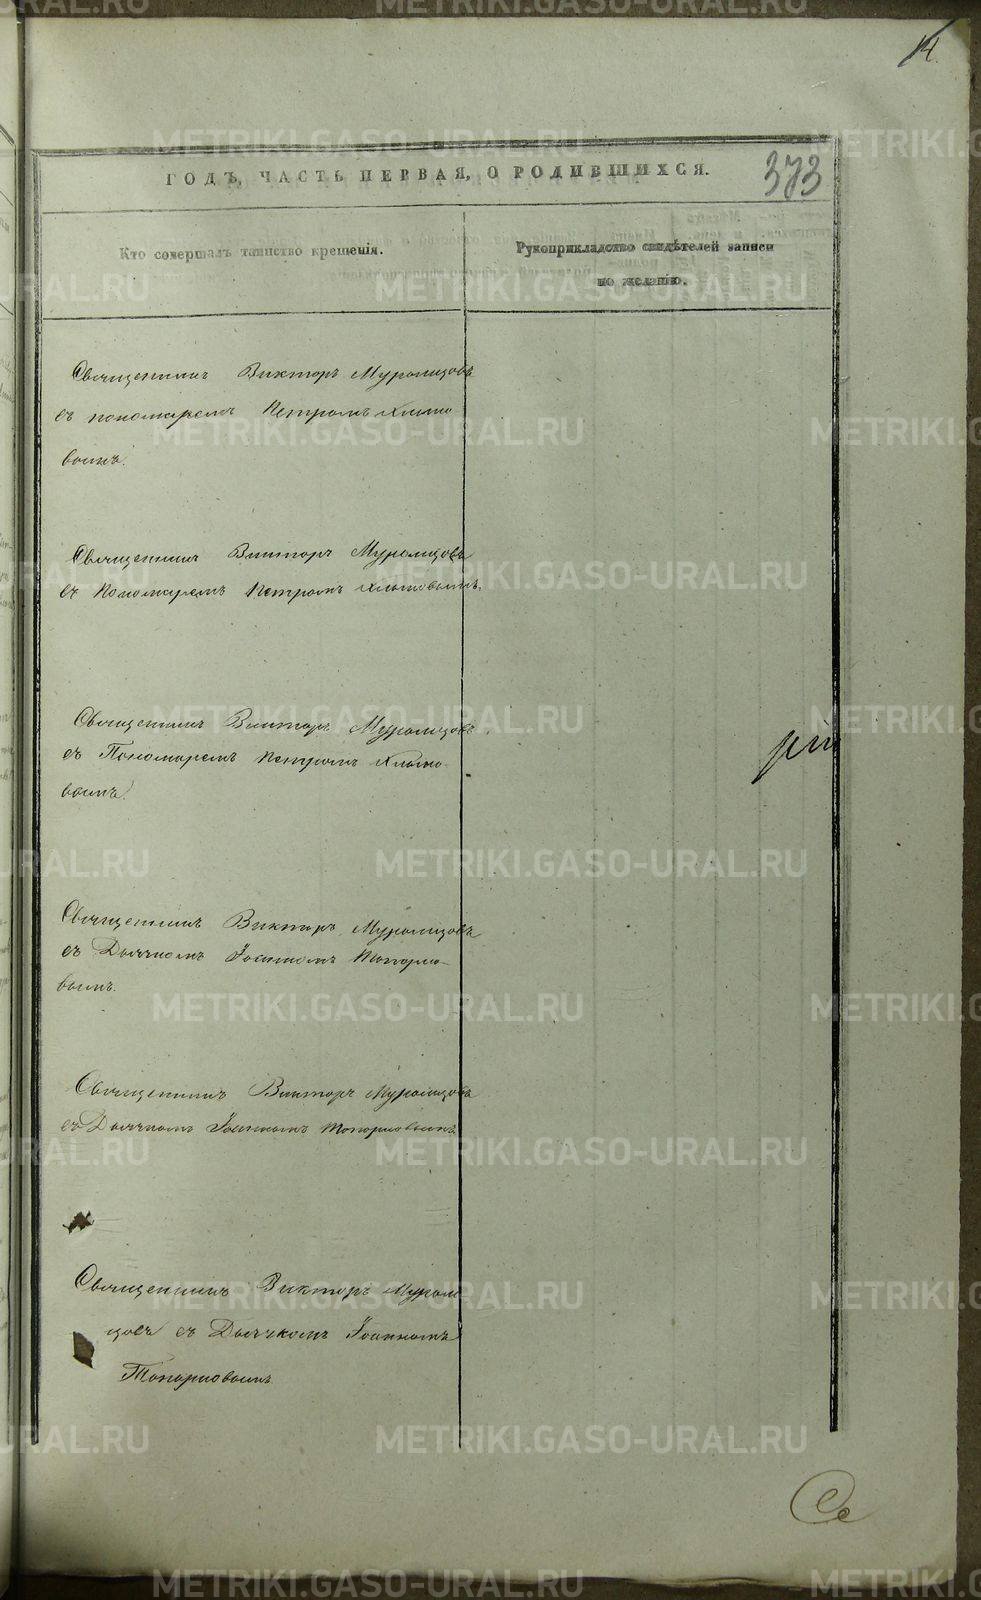 14.
ГОДЪ, ЧАСТЬ ПЕРВАЯ, О РОДИВШИХСЯ.
373
Кто совершалъ таинство крещенія.
Рукоприкладство свидѣтелей записи
по желанію.
Священникъ Викторъ Муромцовъ
съ пономаремъ Петромъ
вымъ.
Священникъ Викторъ Муромцовъ
съ Пономаремъ Петромъ
Священникъ Викторъ Муромцовъ
съ Пономаремъ Петромъ
вымъ.
Священникъ Викторъ Муромцовъ
съ Дьячкомъ Іоанномъ Топорко-
вымъ.
Священникъ Викторъ Муромцовъ
съ Дьячкомъ Іоанномъ Топорковымъ.
Священникъ Викторъ Муром
цовъ съ Дьячкомъ Іоанномъ
Топорковымъ.
METRIKI.GASO-URAL.RU